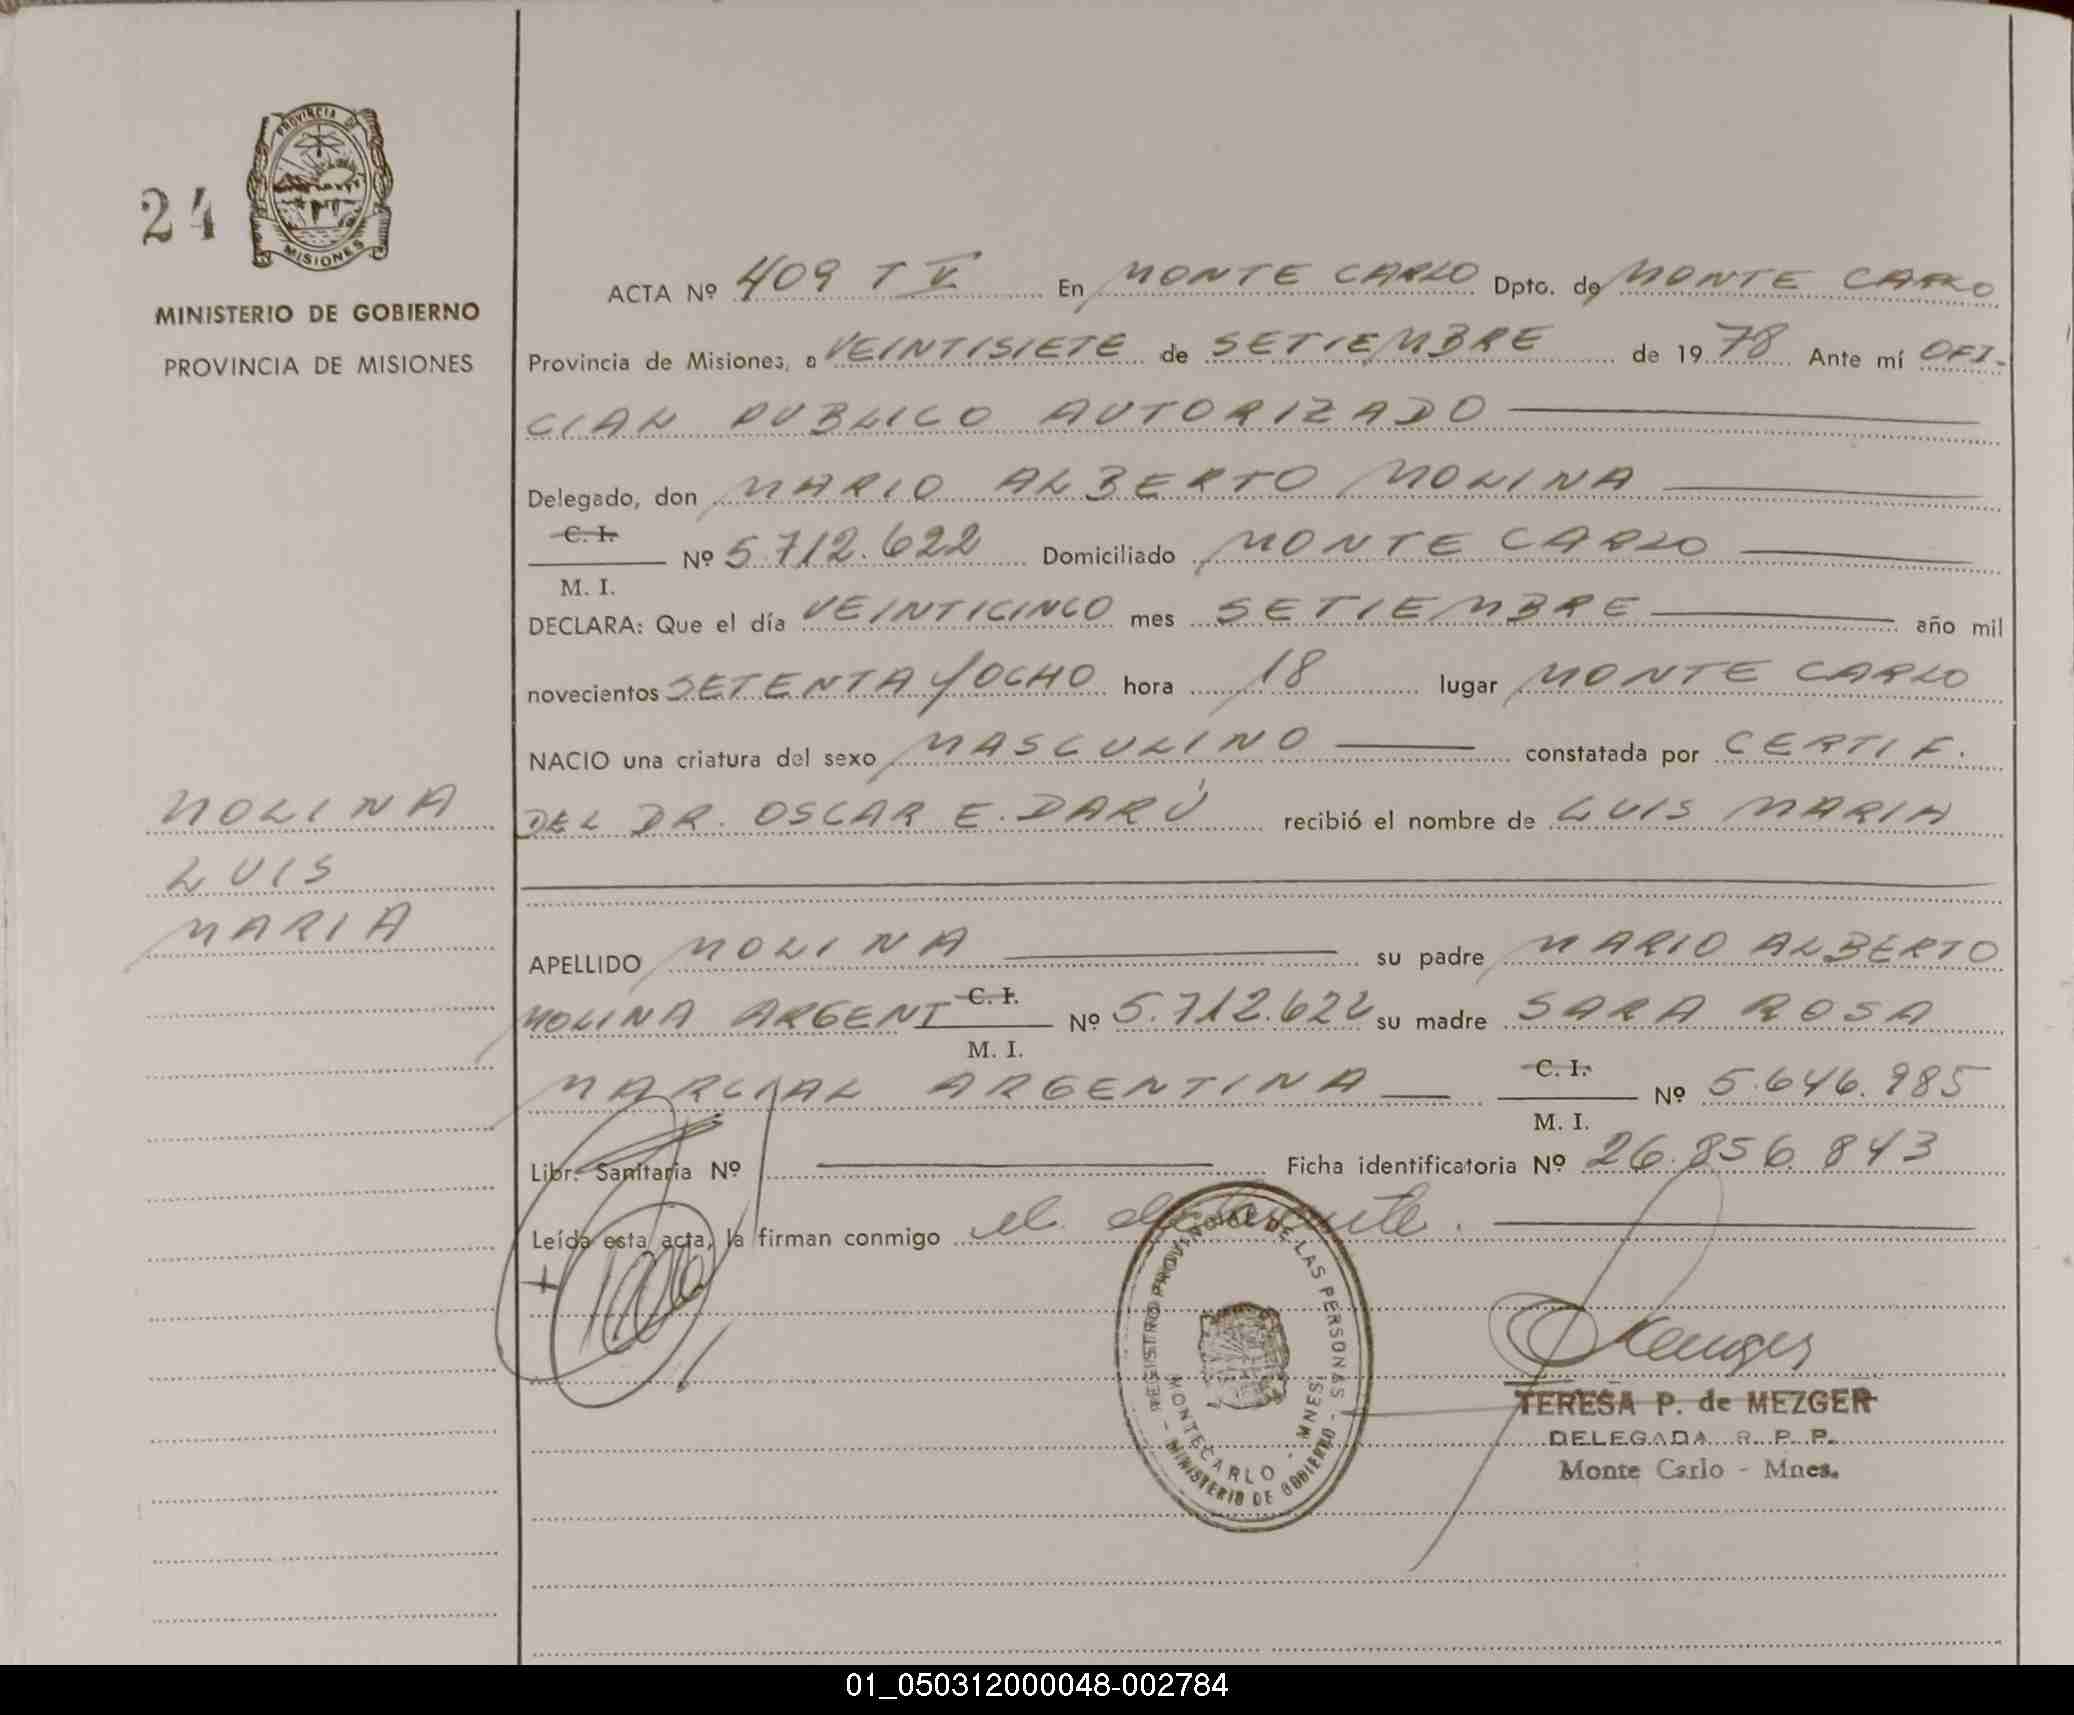 24
PROVINCIA DE
MISIONES
MINISTERIO DE GOBIERNO
PROVINCIA DE MISIONES
ACTA Nº 409 T V En MONTE CARLO Dpto. de MONTE CARLO
Provincia de Misiones, a VEINTISIETE de SETIEMBRE de 1978 Ante mí OFI-
CIAL PUBLICO AUTORIZADO
Delegado, don MARIO ALBERTO MOLINA
C. I.
Nº 5.712.622 Domiciliado MONTE CARLO
M. I.
DECLARA: Que el día VEINTICINCO mes SETIEMBRE año mil
novecientos SETENTA Y OCHO hora 18 lugar MONTE CARLO
NACIO una criatura del sexo MASCULINO constatada por CERTIF.
DEL DR. OSCAR E. DARÚ recibió el nombre de LUIS MARIA
MOLINA
LUIS
MARIA
APELLIDO MOLINA su padre MARIO ALBERTO
MOLINA ARGENT C. I. Nº 5.712.622 su madre SARA ROSA
M. I.
MARCIAL ARGENTINA C. I. Nº 5.646.985
M. I.
Libr. Sanitaria Nº Ficha identificatoria Nº 26.856.843
Leída esta acta, la firman conmigo el declarante.
REGISTRO PROVINCIAL DE LAS PERSONAS
MONTECARLO - MNES.
- MINISTERIO DE GOBIERNO -
TERESA P. de MEZGER
DELEGADA R. P. P.
Monte Carlo - Mnes.
01_050312000048-002784